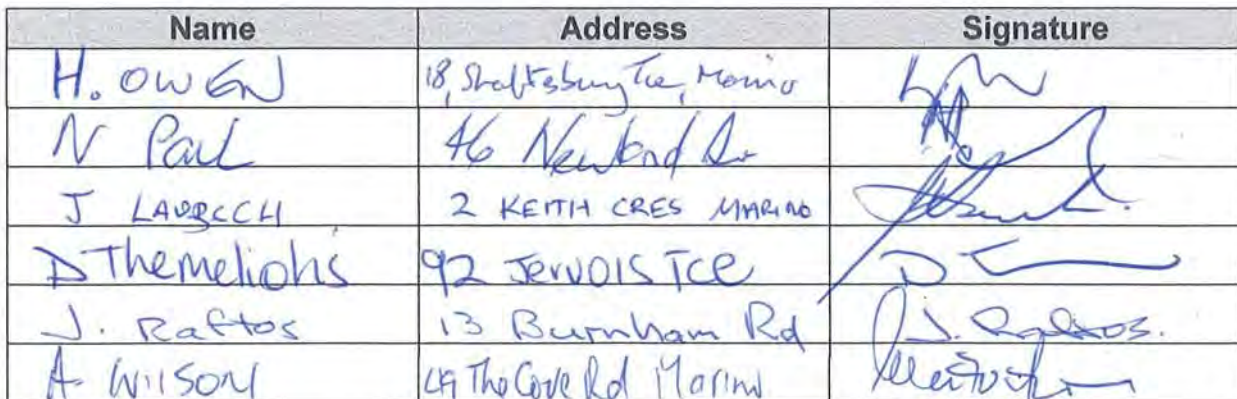 Name Address Signature
H. OWEN 18, Shaftesbury Tce, Marino
N Paul 46 Newland Av
J 2 KEITH CRES MARINO
D Themeliotis 92 Jervois Tce D
J. Raftos 13 Burnham Rd J. Raftos.
A Wilson 49 The Cove Rd Marino